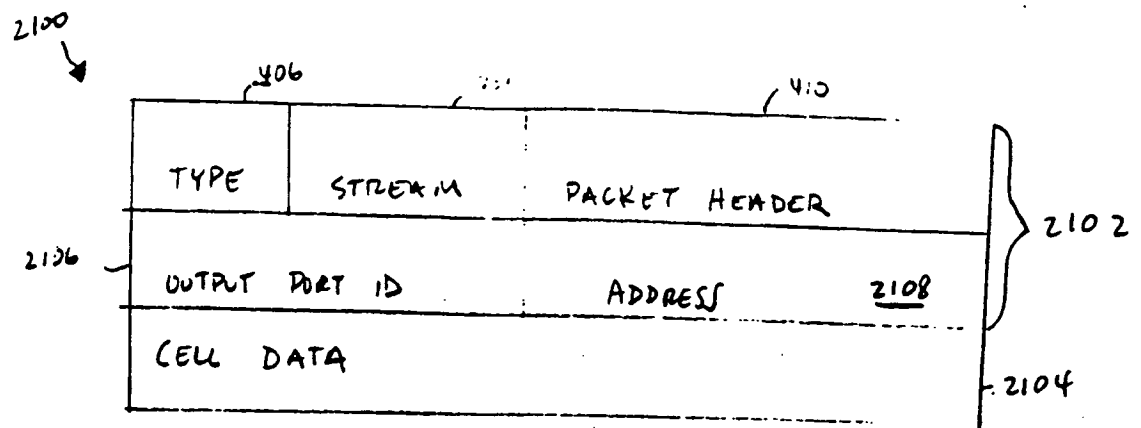 2100
406 410
TYPE STREAM PACKET HEADER
2102
2106 OUTPUT PORT ID ADDRESS 2108
CELL DATA
2104